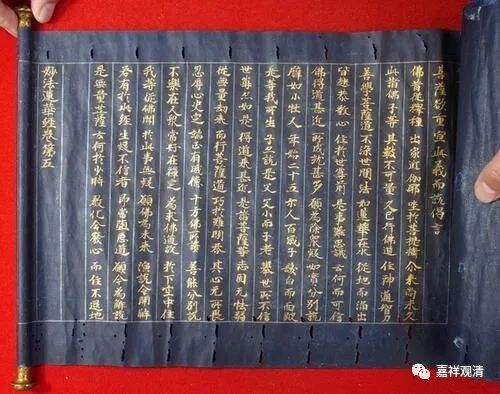 菩薩欲重宣此義而說偈言
佛昔從釋種 出家近伽耶 坐於菩提樹 尒来尚未久
此諸佛子等 其數不可量 久已行佛道 住神通智力
善學菩薩道 不染世間法 如蓮華在水 從地而踊出
皆起恭敬心 住於世尊前 是事難思議 云何而可信
佛得道甚近 所成就甚多 願為除衆疑 如實分別說
譬如少壮人 年始二十五 示人百歲子 髮白而面皺
是等我所生 子亦說是父 父少而子老 舉世所不信
世尊亦如是 得道来甚近 是諸菩薩等 志固无怯弱
從無量劫来 而行菩薩道 巧於難問答 其心无所畏
忍辱心决定 端正有威德 十方佛所讚 善能分別說
不樂在人衆 常好在禪定 為求佛道故 於下空中住
我等從佛聞 於此事無疑 願佛為未来 演說令開解
若有於此經 生疑不信者 即當墮惡道 願今為解說
是無量菩薩 云何於少時 教化令發心 而住不退地
妙法蓮華經卷第五
嘉祥观清